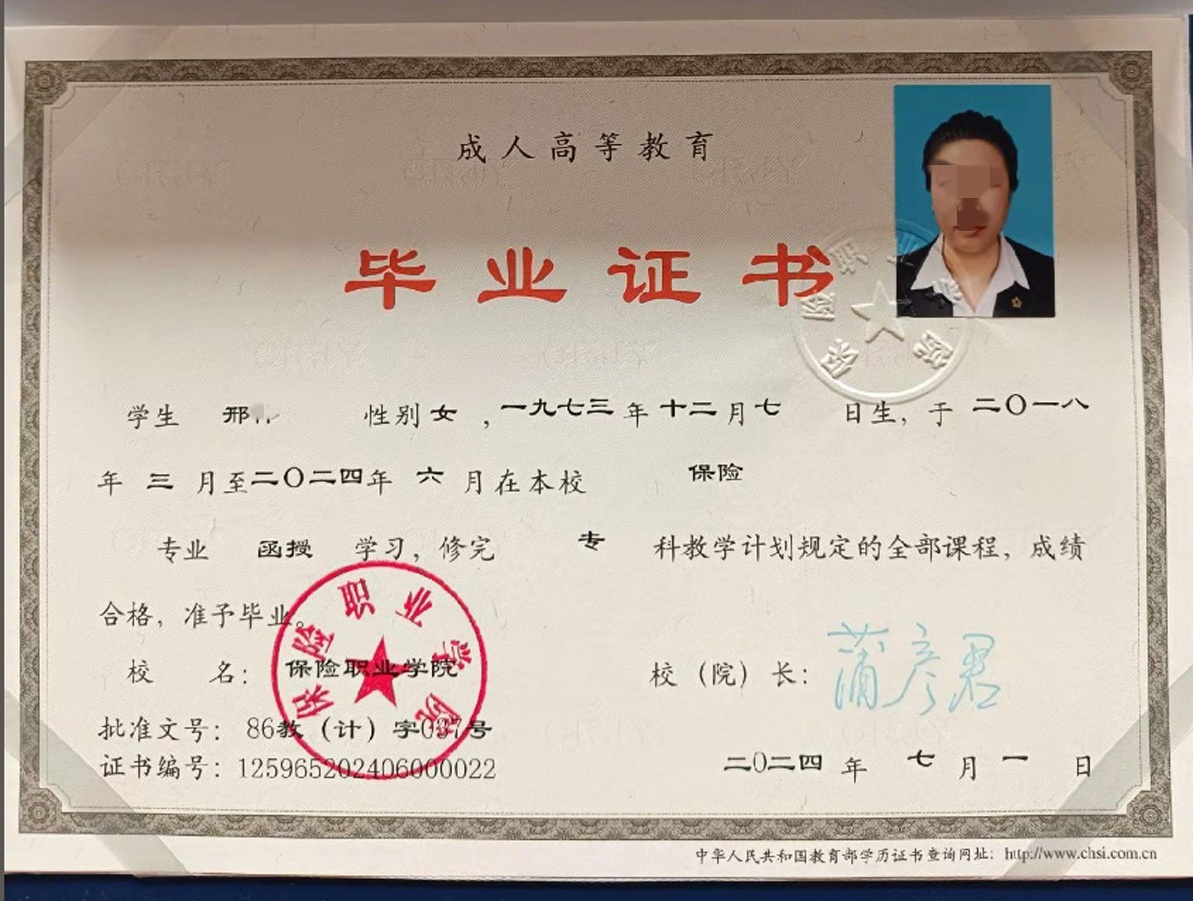 成人高等教育
毕业证书
学生 邢 性别 女，一九七三年 十二月 七 日生，于 二〇一八
年 三 月至二〇二四年 六 月在本校 保险
专业 函授 学习，修完 专 科教学计划规定的全部课程，成绩
合格，准予毕业。
校 名： 保险职业学院
校（院）长： 蒲彦君
批准文号： 86教（计）字037号
证书编号：125965202406000022
二〇二四 年 七 月 一 日
保险职业学院
中华人民共和国教育部学历证书查询网址： http://www.chsi.com.cn